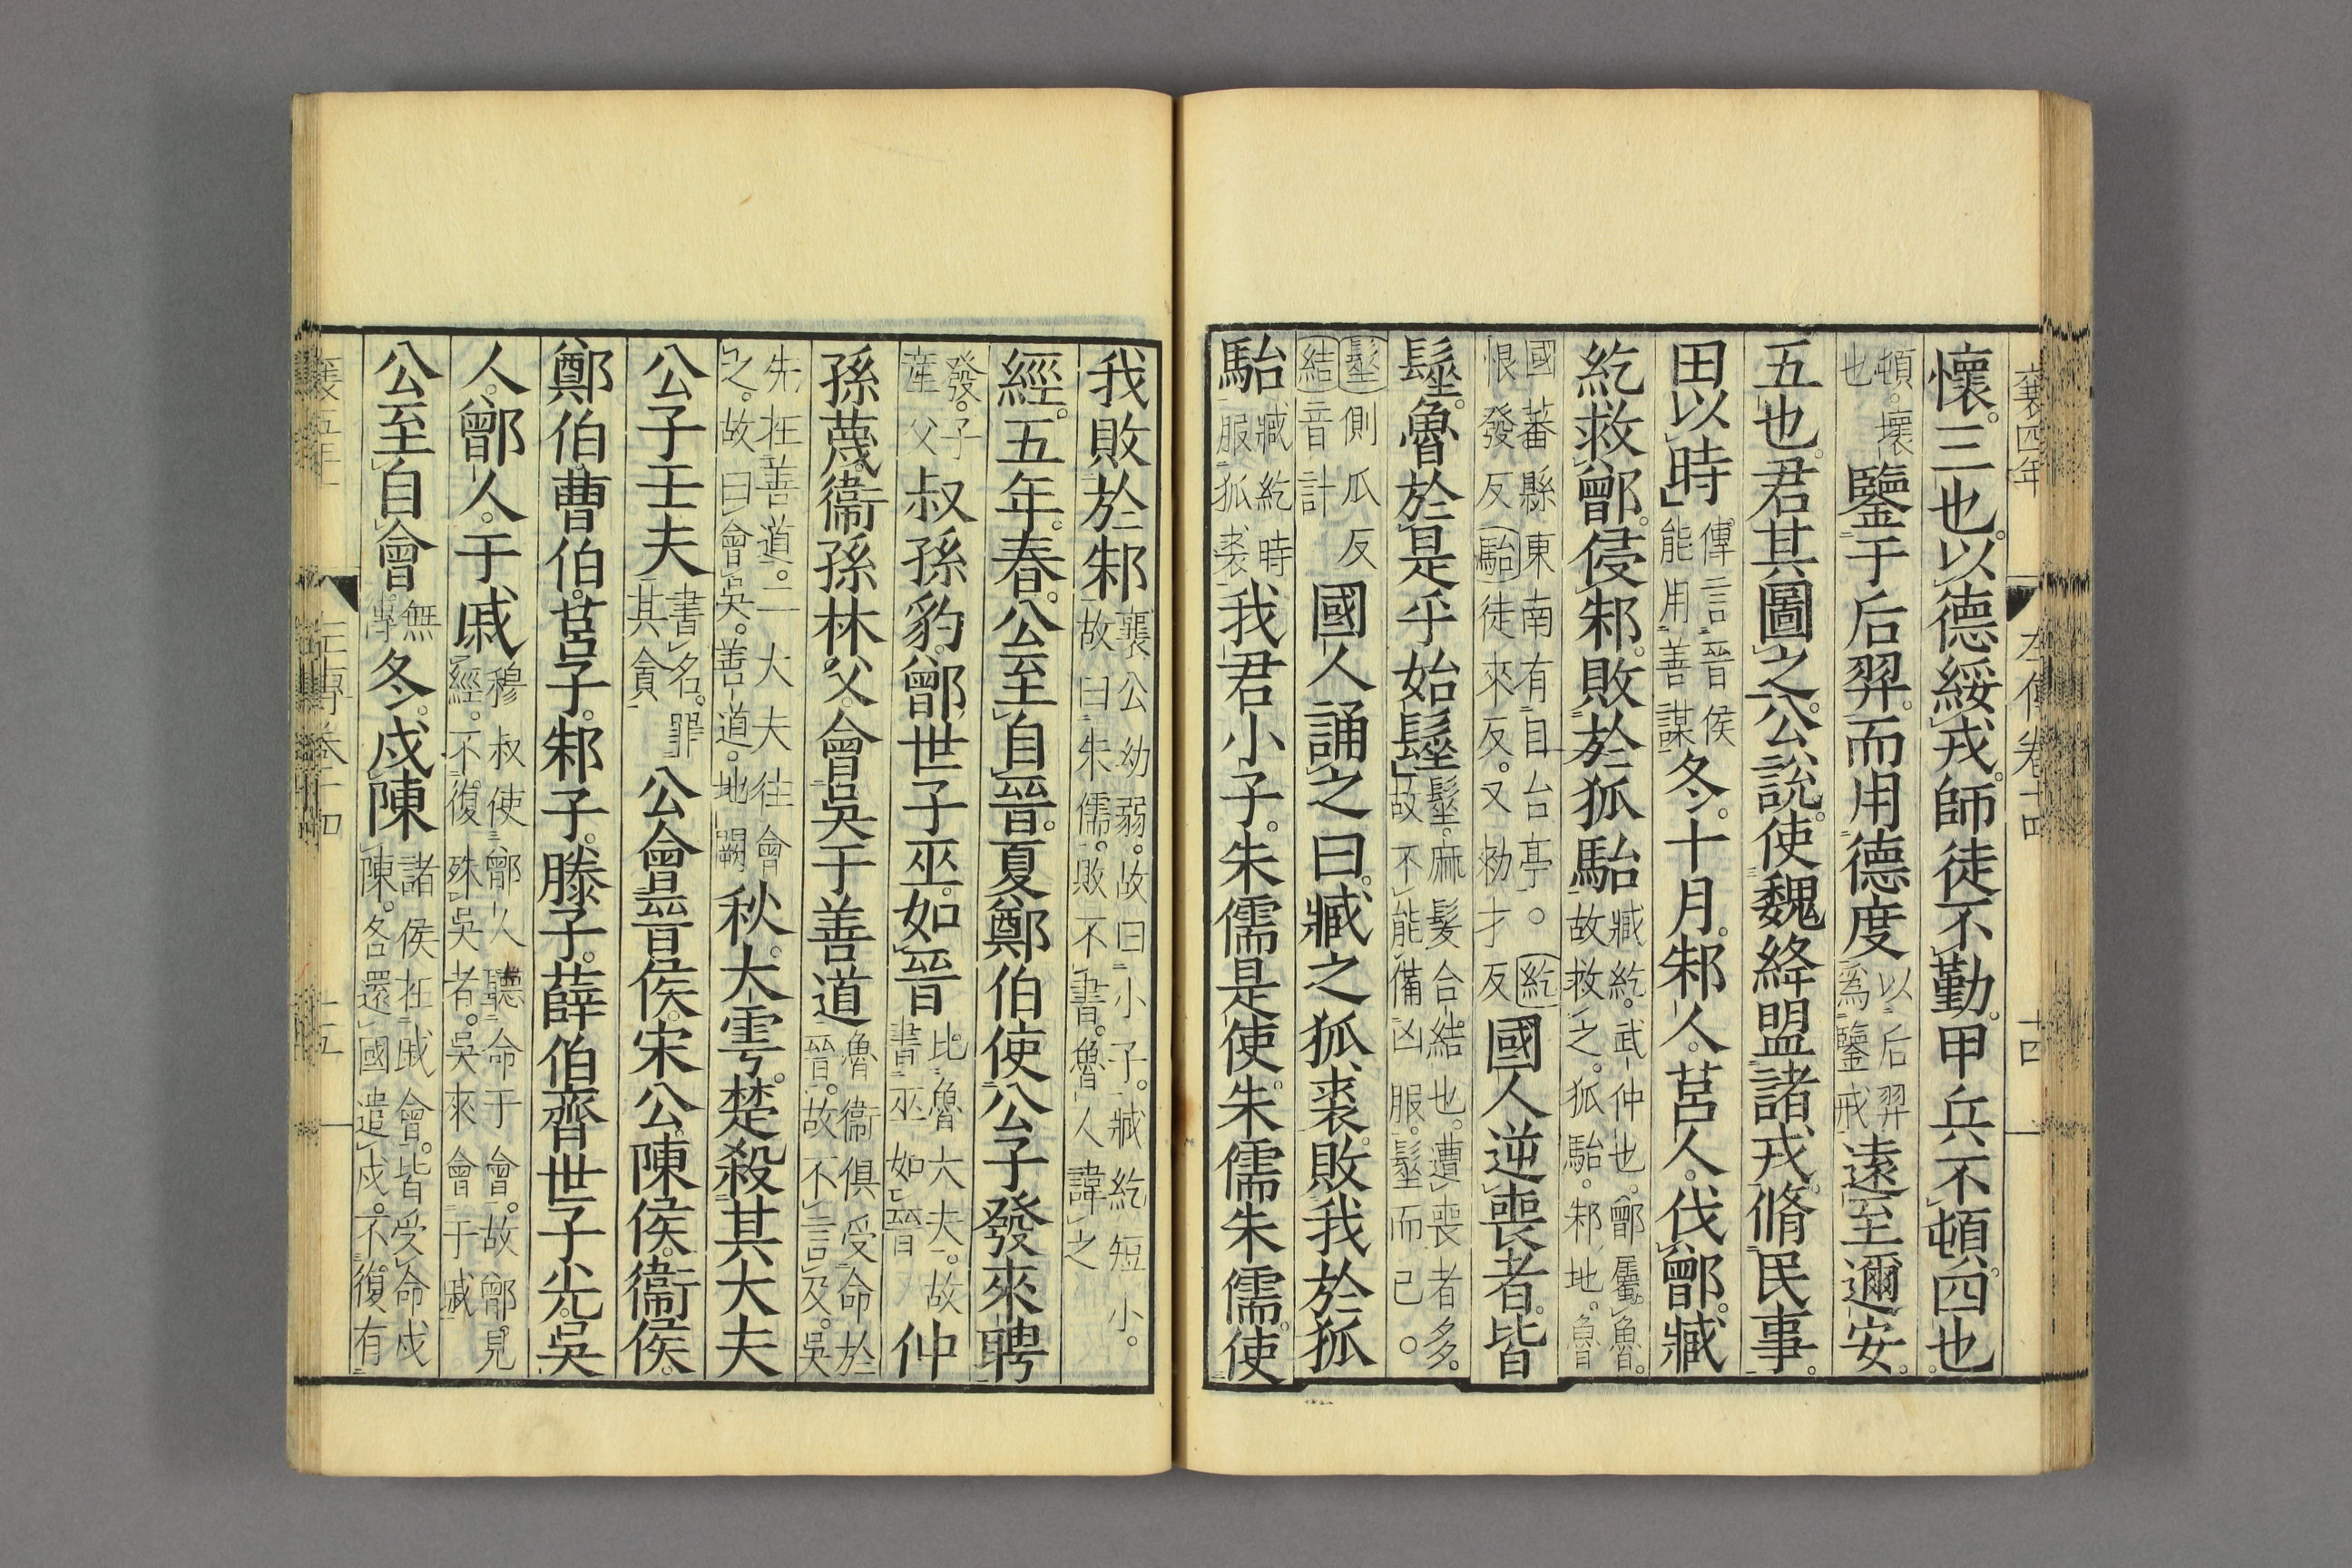 襄四年　左傳卷十四　十四
懷。三也。以德綏戎。師徒不勤。甲兵不頓。四也。
頓。壞
也
鑒于后羿。而用德度
以后羿
爲鑒戒
遠至邇安。
五也。君其圖之。公說。使魏絳盟諸戎。脩民事。
田以時
傳言晉侯
能用善謀
冬。十月。邾人。莒人。伐鄫。臧
紇救鄫。侵邾。敗於狐駘
臧紇。武仲也。鄫屬魯。
故救之。狐駘。邾地。魯
國蕃縣東南有目台亭。○紇
恨發反駘徒來反。又勑才反
國人逆喪者。皆
髽。魯於是乎始髽
髽。麻髮合結也。遭喪者多。
故不能備凶服。髽而已。○
髽側瓜反
結音計
國人誦之曰。臧之狐裘。敗我於狐
駘
臧紇時
服狐裘
我君小子。朱儒是使。朱儒朱儒。使
我敗於邾
襄公幼弱。故曰小子。臧紇短小。
故曰朱儒。敗不書。魯人諱之
經。五年。春。公至自晉。夏鄭伯使公子發來聘
發。子
產父
叔孫豹。鄫世子巫。如晉
比魯大夫。故
書巫如晉
仲
孫蔑。衞孫林父。會吳于善道
魯衞俱受命於
晉。故不言及。吳
先在善道。二大夫往會
之。故曰會吳。善道。地闕
秋。大雩。楚殺其大夫
公子壬夫
書名。罪
其貪
公會晉侯。宋公。陳侯。衞侯。
鄭伯曹伯。莒子。邾子。滕子。薛伯齊世子光。吳
人。鄫人。于戚
穆叔使鄫人聽命于會。故鄫見
經。不復殊吳者。吳來會于戚
公至自會。
無
傳
冬。戍陳
諸侯在戚會。皆受命戍
陳。各還國遣戍。不復有
襄五年　左傳卷十四　十五